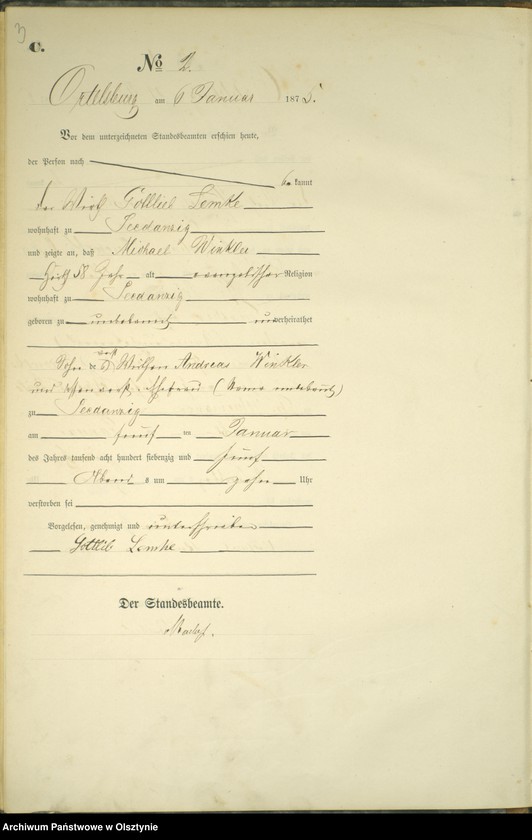 3
C.
No 2.
Ortelsburg am 6 Januar 1875.
Vor dem unterzeichneten Standesbeamten erschien heute,
der Person nach
be kannt
der Wirth Gottlieb Lemke
wohnhaft zu Seedanzig
und zeigte an, daß Michael Winkler
58 Jahr alt evangelischer Religion
wohnhaft zu Seedanzig
geboren zu unbekannt unverheirathet
Sohn des Andreas Winkler
und verst. Ehefrau (Name unbekannt)
zu Seedanzig
am fünf ten Januar
des Jahres tausend acht hundert siebenzig und fünf
Abends um zehn Uhr
verstorben sei
Vorgelesen, genehmigt und unterschrieben
Gottlib Lemke
Der Standesbeamte.
Archiwum Państwowe w Olsztynie